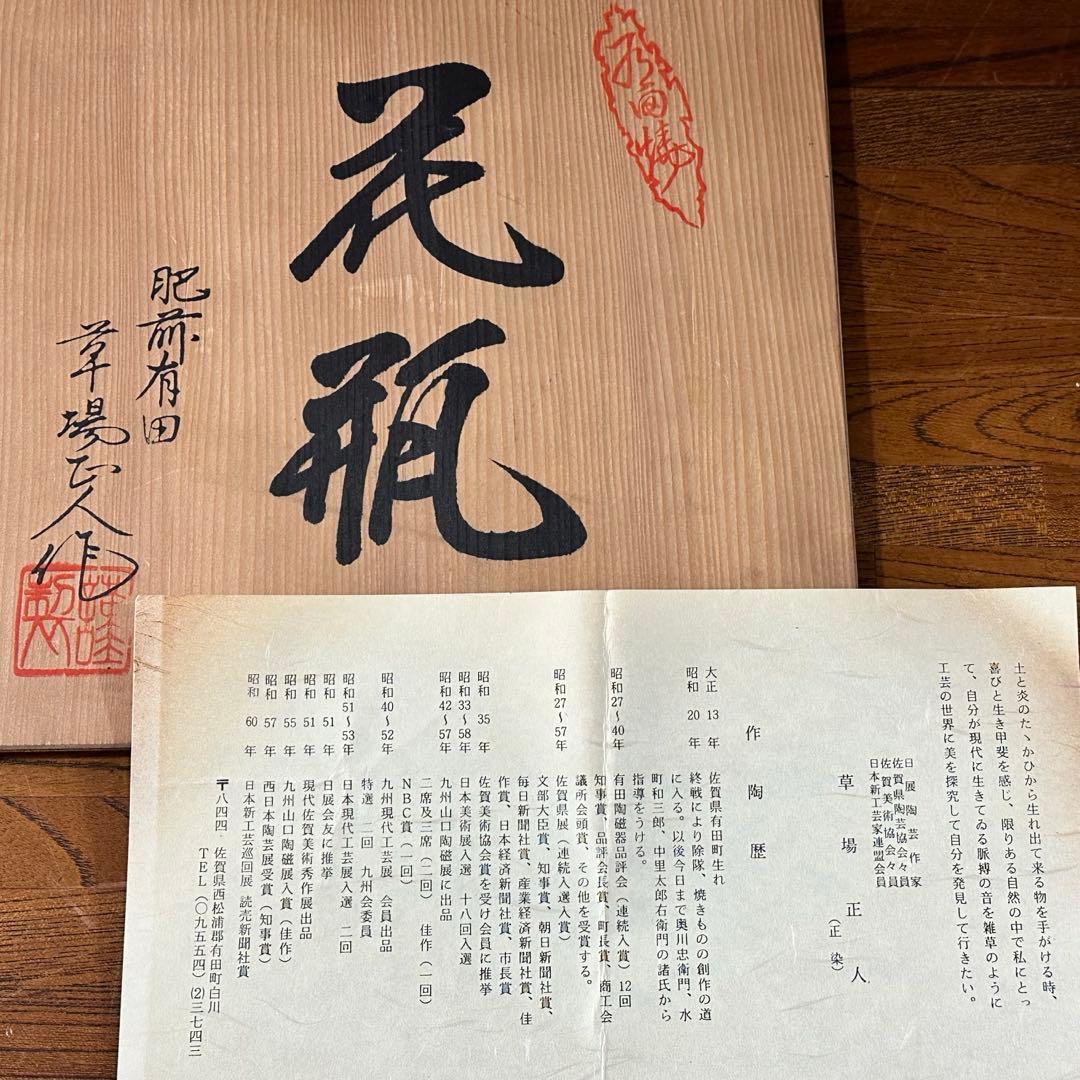 花瓶
有田焼
肥前有田
草場正人作
土と炎のたゝかひから生れ出て来る物を手がける時、
喜びと生き甲斐を感じ、限りある自然の中で私にとっ
て、自分が現代に生きてゐる脈搏の音を雑草のように
工芸の世界に美を探究して自分を発見して行きたい。
日展陶芸作家
佐賀県陶芸協会々員
佐賀美術協会々員
日本新工芸家連盟会員
草場正人
(正染)
作陶歴
大正 13 年 佐賀県有田町生れ
昭和 20 年 終戦により除隊、焼きものの創作の道
に入る。以後今日まで奥川忠衛門、水
町和三郎、中里太郎右衛門の諸氏から
指導をうける。
昭和27〜40年 有田陶磁器品評会(連続入賞)12回
知事賞、品評会長賞、町長賞、商工会
議所会頭賞、その他を受賞する。
昭和27〜57年 佐賀県展(連続入選入賞)
文部大臣賞、知事賞、朝日新聞社賞、
毎日新聞社賞、産業経済新聞社賞、佳
作賞、日本経済新聞社賞、市長賞
昭和 35 年 佐賀美術協会賞を受け会員に推挙
昭和33〜58年 日本美術展入選 十八回入選
昭和42〜57年 九州山口陶磁展に出品
二席及三席(二回) 佳作(一回)
NBC賞(一回)
昭和40〜52年 九州現代工芸展 会員出品
特選 二回 九州会委員
昭和51〜53年 日本現代工芸展入選 二回
昭和 51 年 日展会友に推挙
昭和 51 年 現代佐賀美術秀作展出品
昭和 55 年 九州山口陶磁展入賞(佳作)
昭和 57 年 西日本陶芸展受賞(知事賞)
昭和 60 年 日本新工芸巡回展 読売新聞社賞
〒八四四 佐賀県西松浦郡有田町白川
TEL(〇九五五四)(2)三七四三